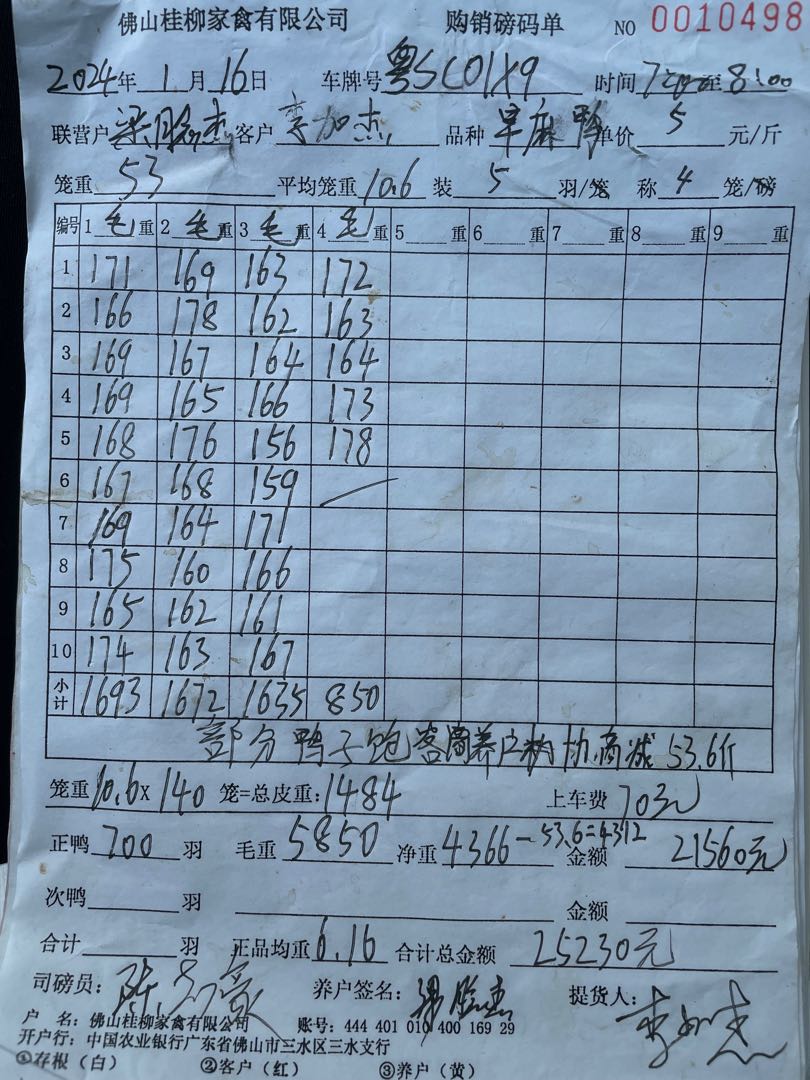 佛山桂柳家禽有限公司 购销磅码单 NO 0010498
2024年 1月 16日 车牌号 粤SC01X9 时间 至8:00
联营户 客户 李加杰 品种 早麻鸭 单价 5 元/斤
笼重 53 平均笼重 10.6 装 5 羽/笼 称 4 笼/磅
编号 1 毛 重 2 毛 重 3 毛 重 4 毛 重 5 重 6 重 7 重 8 重 9 重
1 171 169 163 172
2 166 178 162 163
3 169 167 164 164
4 169 165 166 173
5 168 176 156 178
6 167 168 159
7 169 164 171
8 175 160 166
9 165 162 161
10 174 163 167
小计 1693 1672 1635 850
部分鸭子饱 客商养户 协商减 53.6斤
笼重 10.6 X 140 笼=总皮重: 1484 上车费 70元
正鸭 700 羽 毛重 5850 净重 4366-53.6=4312 金额 21560元
次鸭 羽 金额
合计 羽 正品均重 6.16 合计总金额 25230元
司磅员: 养户签名: 提货人: 李加杰
户 名: 佛山桂柳家禽有限公司 账号: 444 401 010 400 169 29
开户行: 中国农业银行广东省佛山市三水区三水支行
①存根(白) ②客户(红) ③养户(黄)